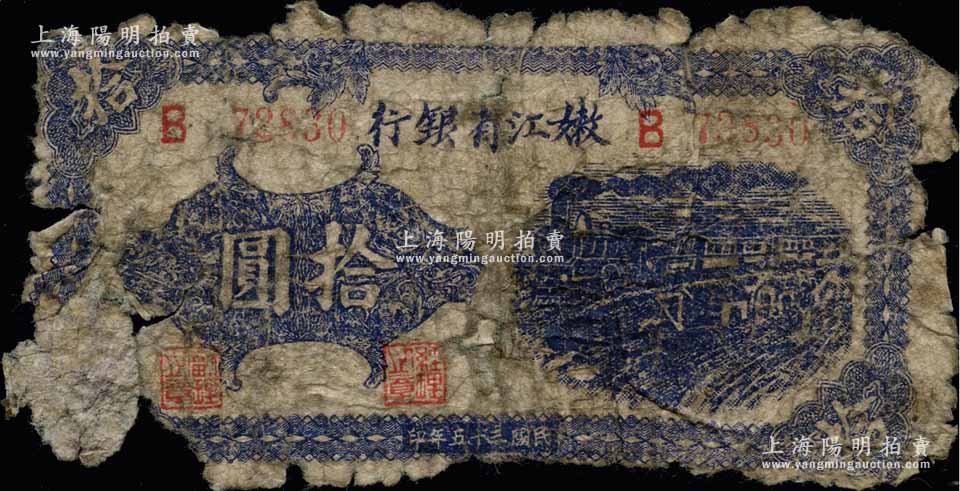 上海陽明拍賣
www.yangmingauction.com
拾
拾
嫩江省銀行
B 72830
B 72830
拾圓
上海陽明拍賣
www.yangmingauction.com
副理之章
經理之章
民國三十五年印
上海陽明拍賣
www.yangmingauction.com